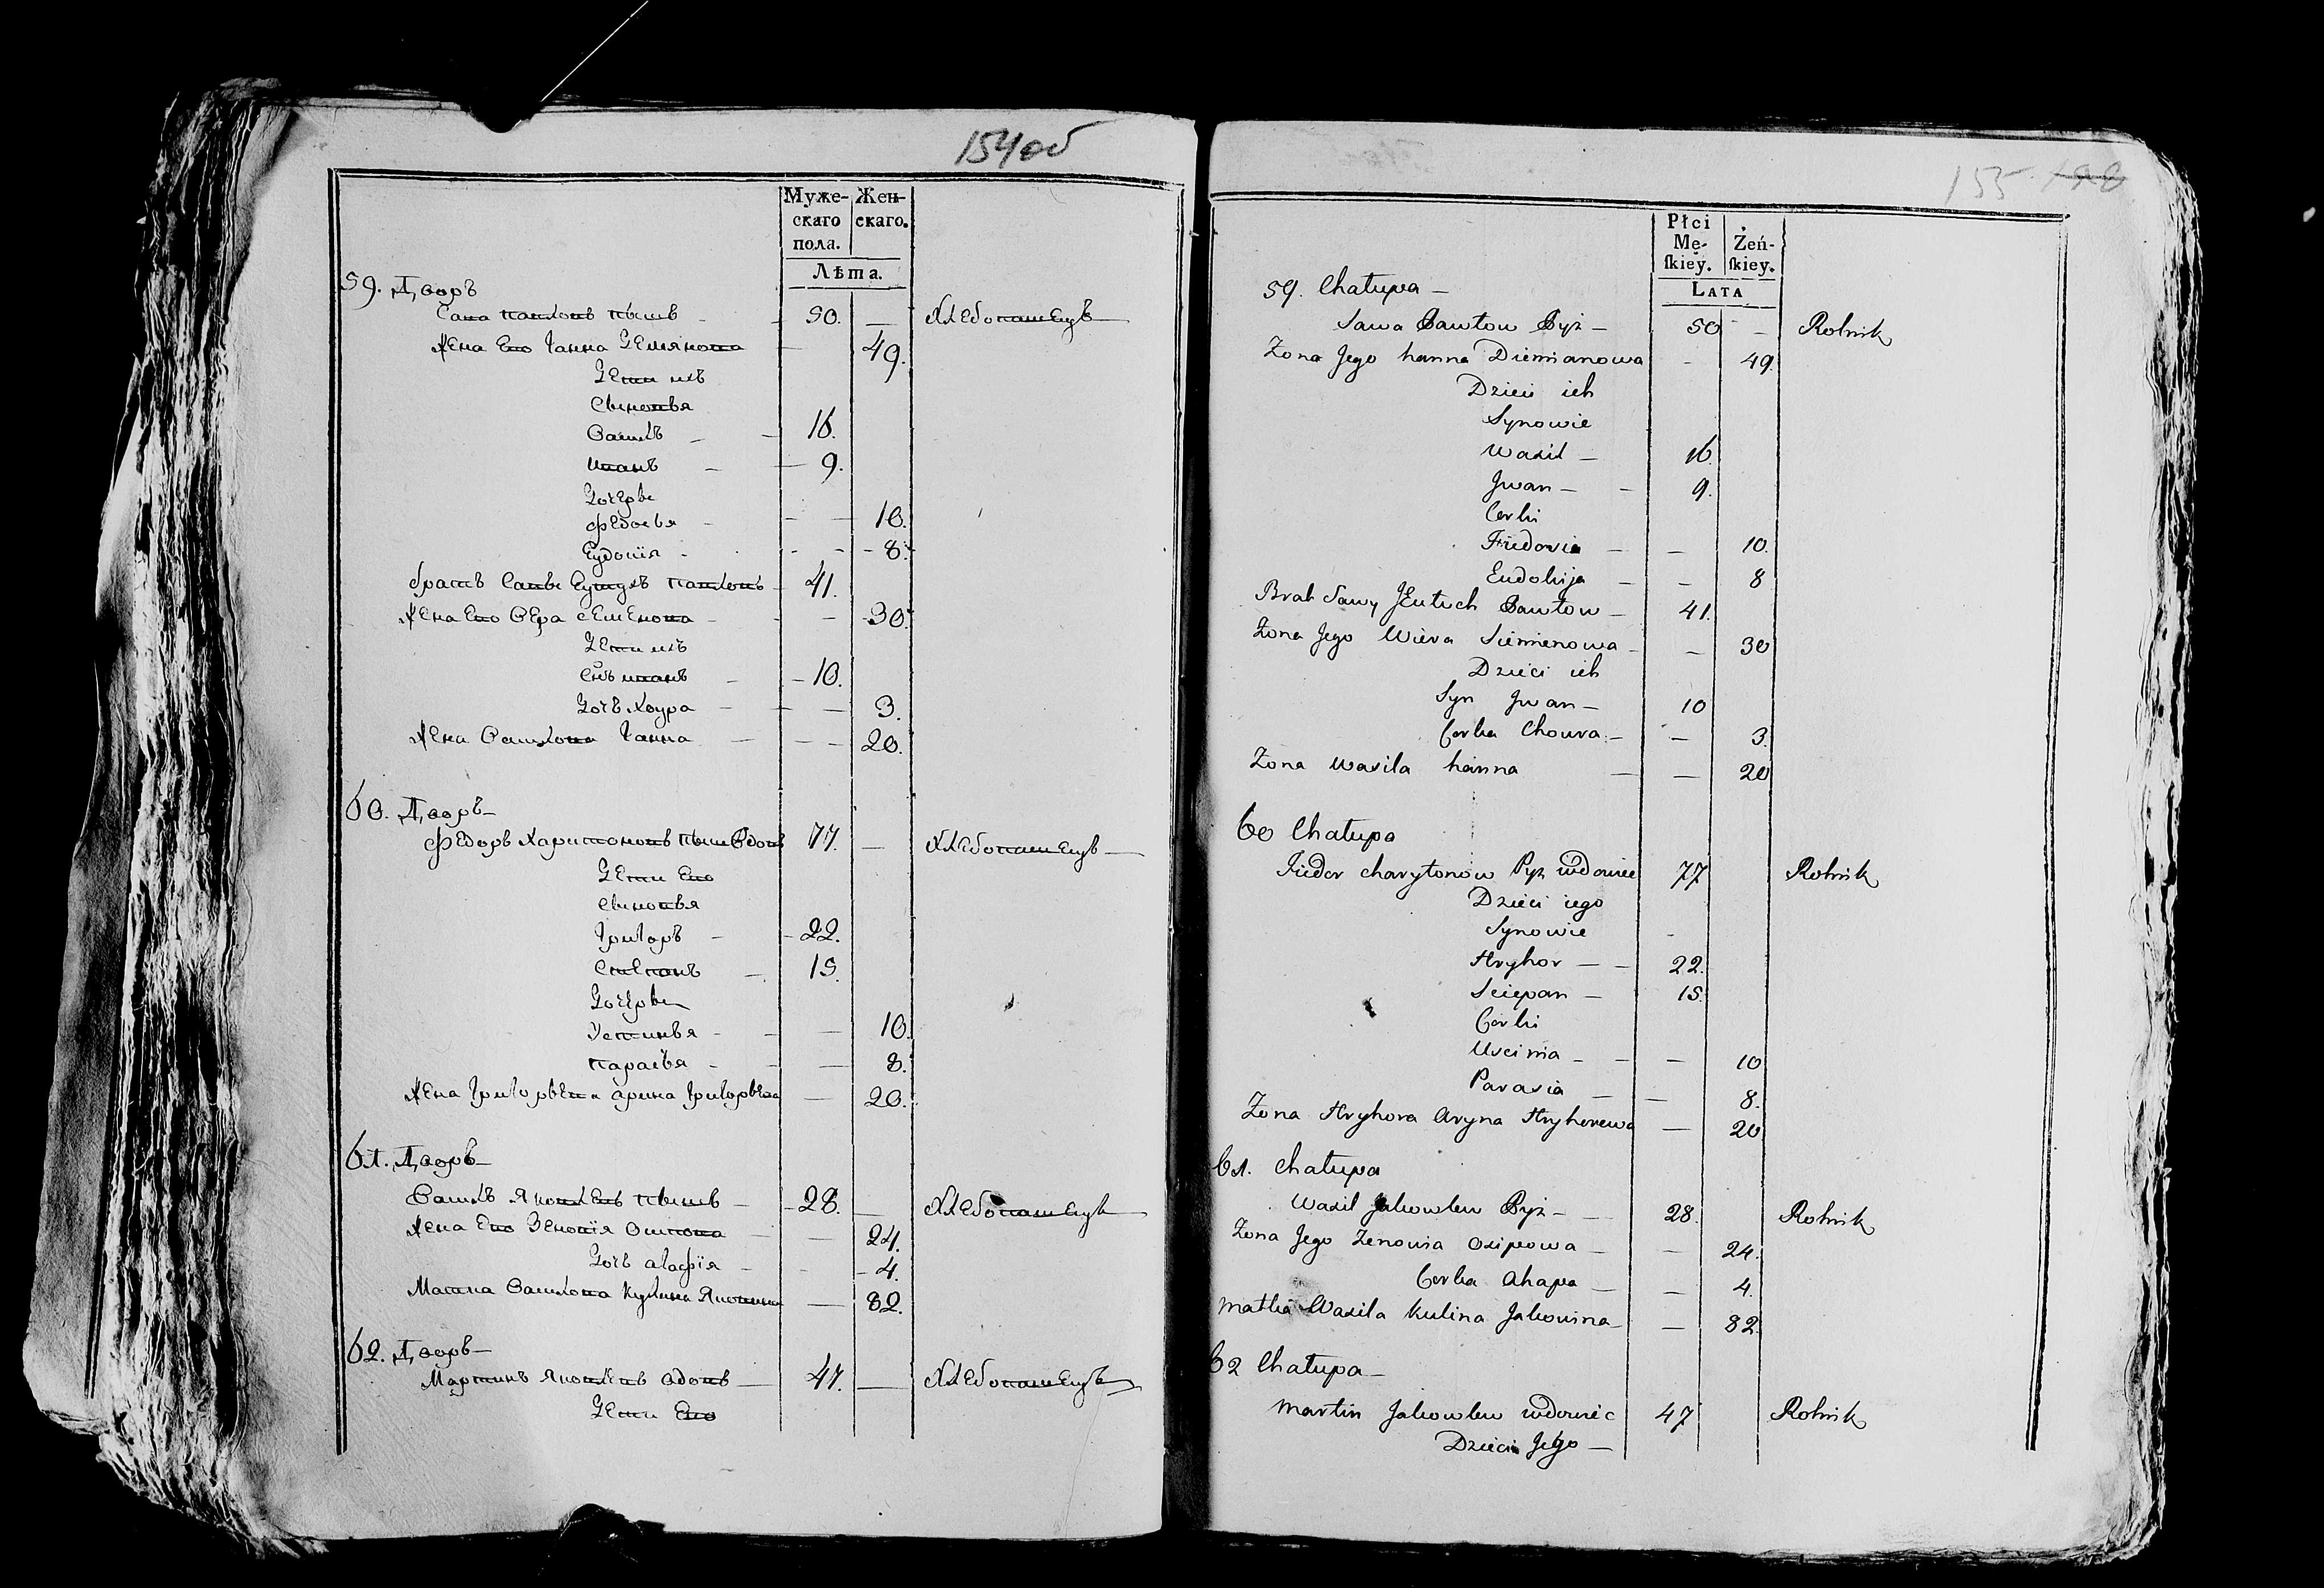 154об
Муже- Жен-
скаго скаго.
пола.
Лѣта.
59. Дворъ
Сава Павловъ Пыжъ - 50. — Хлебопашецъ
Жена Его Ганна Демянова — 49.
Дети ихъ
Сыновья
Василь — 16.
Иванъ — 9.
Дочеры
Федосья — 10.
Еудокія - 8.
Братъ Савы Еутухъ Павловъ 41.
Жена Его Вера Семенова - — 30.
Дети ихъ
Снъ Иванъ — 10.
Дочь Хоура — 3.
Жена Василова Ганна — 20.
60. Дворъ
Федоръ Харитоновъ Пыжъ вдовъ 77. — Хлебопашецъ
Дети Его
Сыновья
Григоръ - 22.
Степанъ — 15.
Дочеры
Устинья - — 10.
Парасья - — 8.
Жена Григорьева Арина Григорьева — 20.
61. Дворъ
Василь Яковлевъ Пыжъ — 28. — Хлебопашецъ
Жена Его Зеновія Осипова — 24.
Дочь Агафія — 4.
Матка Василова Кулина Яковина — 82.
62. Дворъ
Мартинъ Яковлевъ вдовъ — 47. — Хлебопашецъ
Дети Его
155
Płci
Mę- Żeń-
ſkiey. ſkiey.
LATA
59. Chałupa —
Sawa Pawłow Pyż — 50 — Rolnik
Zona Jego hanna Diemianowa - 49.
Dzieci ich
Synowie
Wasil — 16.
Jwan — 9.
Corki
Fiedosia — 10.
Eudokija — 8
Brat Sawy JEutuch Pawłow — 41.
Zona Jego Wiera Siemienowa — 30
Dzieci ich
Syn Jwan — 10
Corka Choura — 3.
Zona Wasila hanna — 20
60 Chałupa
Fiedor Charytonow Pyż wdowiec 77 Rolnik
Dzieci iego
Synowie
Hryhor — 22.
Sciepan — 15.
Corki
Uscinia — 10
Parasia — 8.
Zona Hryhora Aryna Hryhorewa — 20
61. Chałupa
Wasil Jakowlew Pyż — 28. Rolnik
Zona Jego Zenowia Osipowa — 24.
Corka Ahapa — 4.
Matka Wasila Kulina Jakowina — 82.
62 Chałupa —
Martin Jakowlew wdowiec 47 Rolnik
Dzieci Jego —